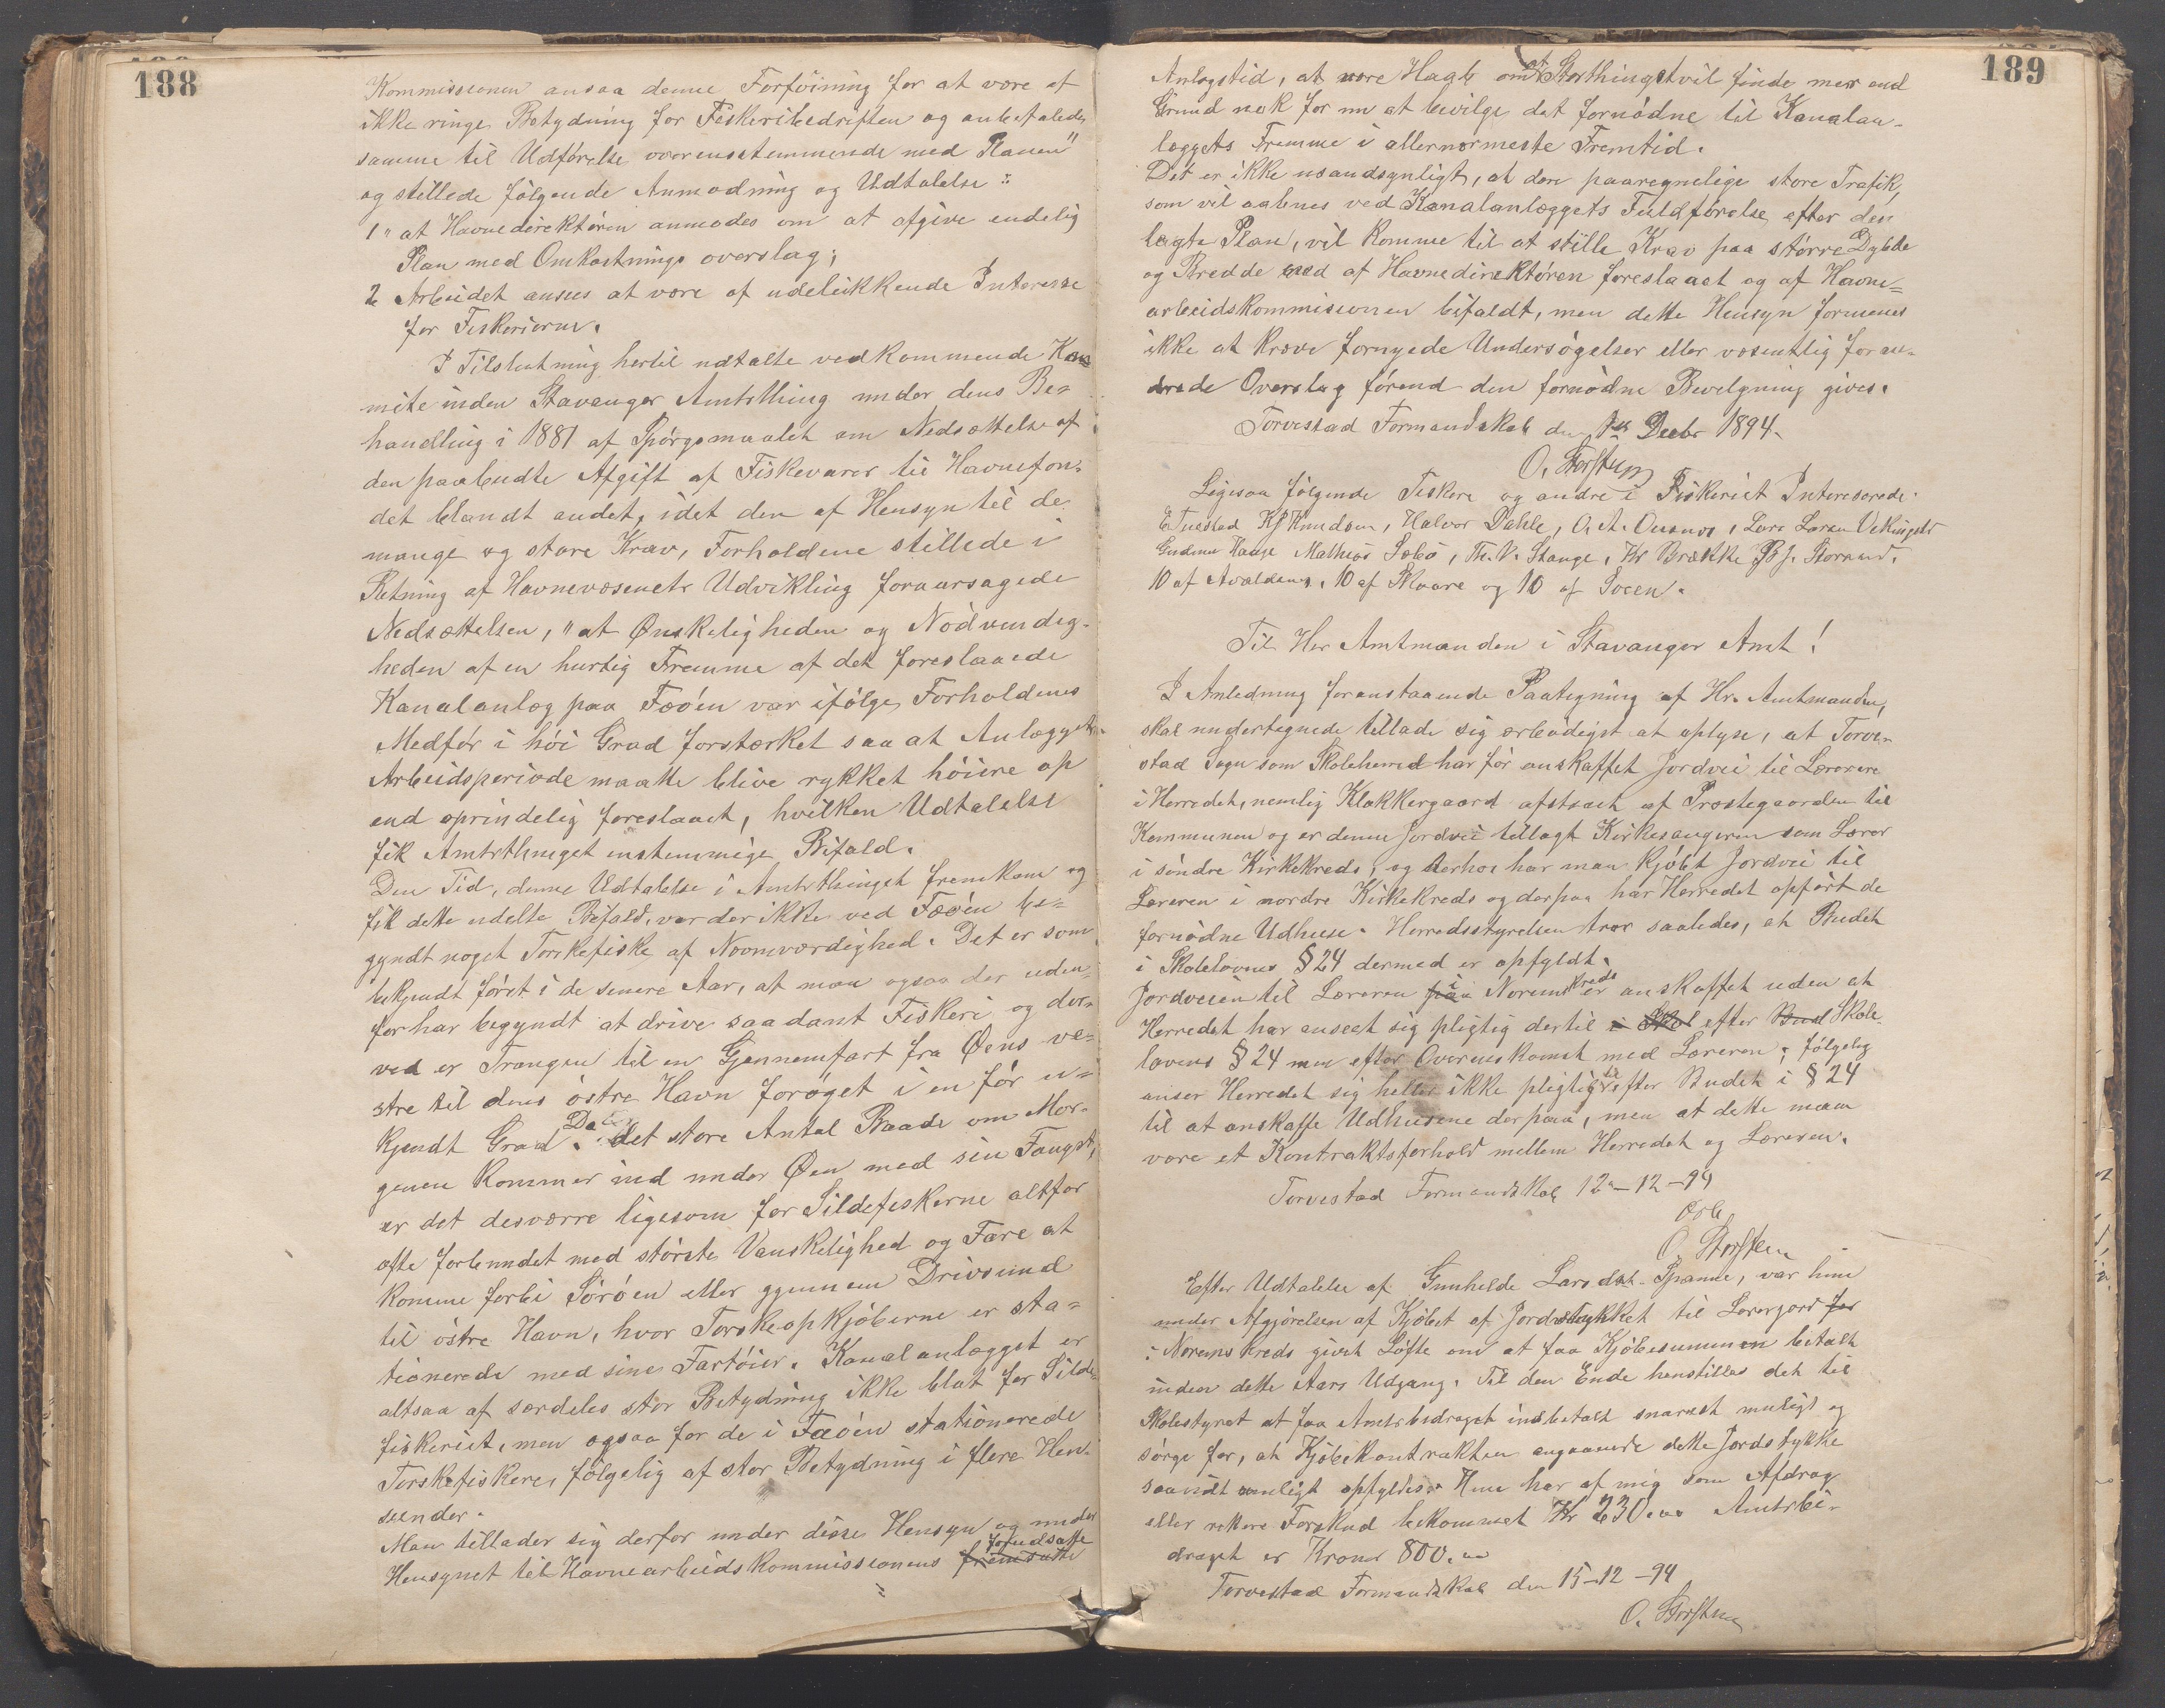 188
Kommissionen ansaa denne Forføining for at være af
ikke ringe Betydning for Fiskeribedriften og anbefalede
samme til Udførelse overensstemmende med Planen"
og stillede følgende Anmodning og Udtalelse:
1" at Havnedirektøren anmodes om at afgive endelig
Plan med Omkostnings overslag;
2 Arbeidet ansees at være af udelukkende Interesse
for Fiskerierne.
I Tilslutning hertil udtalte vedkommende Kom
mite inden Stavanger Amtsthing under dens Be-
handling i 1881 af Spørgsmaalet om Nedsættelse af
den paabudte Afgift af Fiskevarer til Havnefon-
det blandt andet, idet den af Hensyn til de
mange og store Krav, Forholdene stillede i
Retning af Havnevæsenets Udvikling foraarsagede
Nedsættelsen, "at Ønskeligheden og Nødvendig-
heden af en hurtig Fremme af det foreslaaede
Kanalanlæg paa Fæøen var ifølge Forholdenes
Medfør i høi Grad forstærket saa at Anlæggets
Arbeidsperiode maatte blive rykket høiere op
end oprindelig foreslaaet, hvilken Udtalelse
fik Amtsthinget enstemmige Bifald.
Den Tid, denne Udtalelse i Amtsthinget fremkom og
fik dette udelte Bifald, var der ikke ved Fæøen be-
gyndt noget Torskefiske af Nævneværdighed. Det er som
bekjendt først i de senere Aar, at man ogsaa der uden-
for har begyndt at drive saadant Fiskeri og der-
ved er Trangen til en Gjennemfart fra Øens ve-
stre til dens østre Havn forøget i en før u-
kjendt Grad. Da det store Antal Baade om Mor-
genen kommer ind under Øen med sin Fangst,
er det desværre ligesom for Sildefiskerne altfor
ofte forbundet med største Vanskelighed og Fare at
komme forbi Sørøen eller gjennem Drivsund
til østre Havn, hvor Torskeopkjøberne er sta-
tionerede med sine Fartøier. Kanalanlægget er
altsaa af særdeles stor Betydning ikke blot for Silde-
fiskeriet, men ogsaa for de i Fæøen stationerede
Torskefiskere, følgelig af stor Betydning i flere Hen-
seender.
Man tillader sig derfor under disse Hensyn og under
Hensynet til Havnearbeidskommissionens fremsatte forudsatte
189
Anlægstid, at nære Haab om at Storthinget vil finde mer end
Grund nok for nu at bevilge det fornødne til Kanalan-
læggets Fremme i allernærmeste Fremtid.
Det er ikke usandsynligt, at den paaregnelige store Trafik,
som vil aabnes ved Kanalanlæggets Fuldførelse efter den
lagte Plan, vil komme til at stille Krav paa større Dybde
og Bredde end af Havnedirektøren foreslaaet og af Havne-
arbeidskommissionen bifaldt, men dette Hensyn formenes
ikke at kræve fornyede Undersøgelser eller væsentlig foran-
drede Overslag førend den fornødne Bevilgning gives.
Torvestad Formandskab den 1ste Decbr 1894.
O. Storstein
Ligesaa følgende Fiskere og andre i Fiskeriet Interesserede.
Knudsen, Halvor Dahle, O. A. Lars Larsen
Gudmu Haage Mathias Sæbø, Th. V. Stange, Kr Brække
10 af Avaldsnes, 10 af Skaare og 10 af
Til Her Amtmanden i Stavanger Amt!
I Anledning foranstaaende Paategning af Hr. Amtmanden,
skal undertegnede tillade sig ærbødigst at oplyse, at Torve-
stad Sogn som Skoleherred har før anskaffet Jordvei til Lærerne
i Herredet, nemlig Klokkergaard afstaaet af Præstegaarden til
Kommunen og er denne Jordvei tillagt Kirkesangeren som Lærer
i søndre Kirkekreds, og derhos har man kjøbt Jordvei til
Læreren i nordre Kirkekreds og derpaa har Herredet opført de
fornødne Udhuse. Herredsstyrelsen tror saaledes, at Budet
i Skolelovens § 24 dermed er opfyldt.
Jordveien til Læreren paa i Norems kreds er anskaffet uden at
Herredet har anseet sig pligtig dertil i Skol efter Bud Skole-
lovens § 24 men efter Overenskomst med Læreren; følgelig
anser Herredet sig heller ikke pligtig til efter Budet i § 24
til at anskaffe Udhusene derpaa, men at dette maa
være et Kontraktsforhold mellem Herredet og Læreren.
Torvestad Formandskab 12-12-94
Ærb
O. Storstein
Efter Udtalelse af Gunhilde Larsdat. Spanne, var hun
under Afgjørelsen af Kjøbet af Jordstykket til Lærerjord for
i Norems kreds givet Løfte om at faa Kjøbesummen betalt
inden dette Aars Udgang. Til den Ende henstilles det til
Skolestyret at faa Amtsbidraget indbetalt snarest muligt og
sørge for, at Kjøbekontrakten angaaende dette Jordstykke
saavidt muligt opfyldes. Hun har af mig som Afdrag
eller rettere Forskud bekommet Kr 230.00 Amtsbi-
draget er Kroner 800.00
Torvestad Formandskab den 15-12-94
O. Storstein